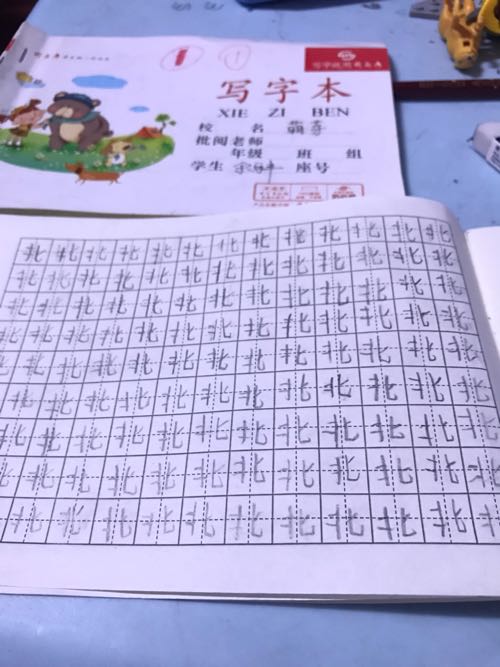 写字本
XIE ZI BEN
校 名
批阅老师
年级 班 组
学生 座号
北北北北北北北北北北北北北
北北北北北北北北北北北北北
北北北北北北北北北北北北北
北北北北北北北北北北北北北
北北北北北北北北北北北北
北北北北北北北北北北北北
北北北北北北北北北北北北
北北北北北北北北北北北
北北北北北北北北北北